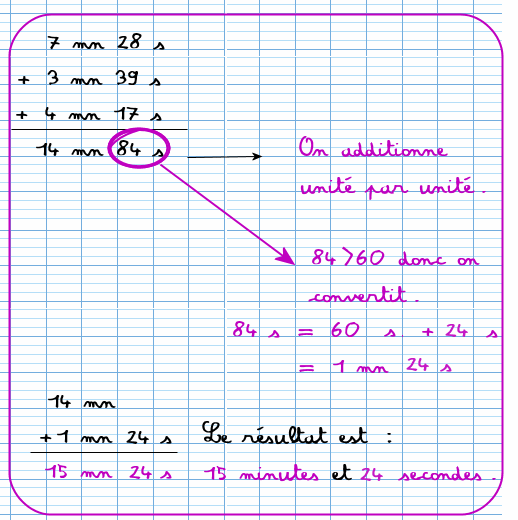 7 mn 28 s
+ 3 mn 39 s
+ 4 mn 17 s
14 mn 84 s
On additionne
unité par unité.
84>60 donc on
convertit.
84 s = 60 s. + 24 s
= 1 mn 24 s
14 mn
+1 mn 24 s
15 mn 24 s
Le résultat est :
15 minutes et 24 secondes.